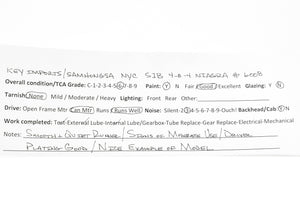 KEY IMPORTS/SAMHONGSA NYC S1B 4-8-4 NIAGRA # 6008
Overall condition/TCA Grade: C-1-2-3-4-5-6-7-8-9 Paint: Y N Fair Good/Excellent Glazing: Y N
Tarnish: None / Mild / Moderate / Heavy Lighting: Front Rear Other:
Drive: Open Frame Mtr Can Mtr Runs Runs Well Noise: Silent-2-3-4-5-6-7-8-9-Ouch! Backhead/Cab Y N
Work completed: Test-External Lube-Internal Lube/Gearbox-Tube Replace-Gear Replace-Electrical-Mechanical
Notes: SMOOTH & QUIET RUNNER / SIGNS OF MODERATE USE / DRIVER
PLATING GOOD / NICE EXAMPLE OF MODEL